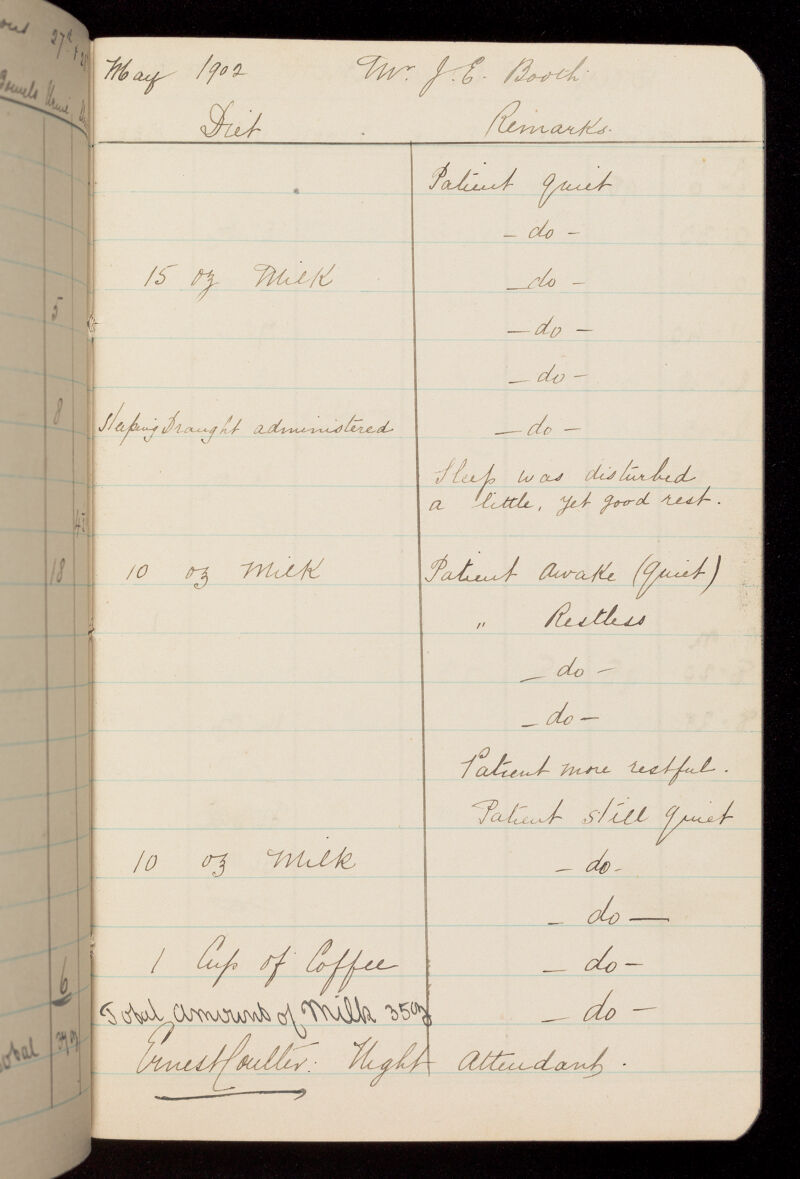 27th + 28
Bowels Urine
May 1902 Mr. J. E. Booth.
Diet Remarks.
Patient quiet
- do -
15 oz Milk - do -
5
- do -
- do -
8
Sleeping Draught administered - do -
Sleep was disturbed
a little, yet good rest.
18
10 oz Milk Patient Awake (quiet)
" Restless
- do -
- do -
Patient more restful.
Patient still quiet
10 oz Milk - do -
- do -
6
1 Cup of Coffee - do -
Total amount of Milk 35oz - do -
Total
Ernest Coulter: Night Attendant.